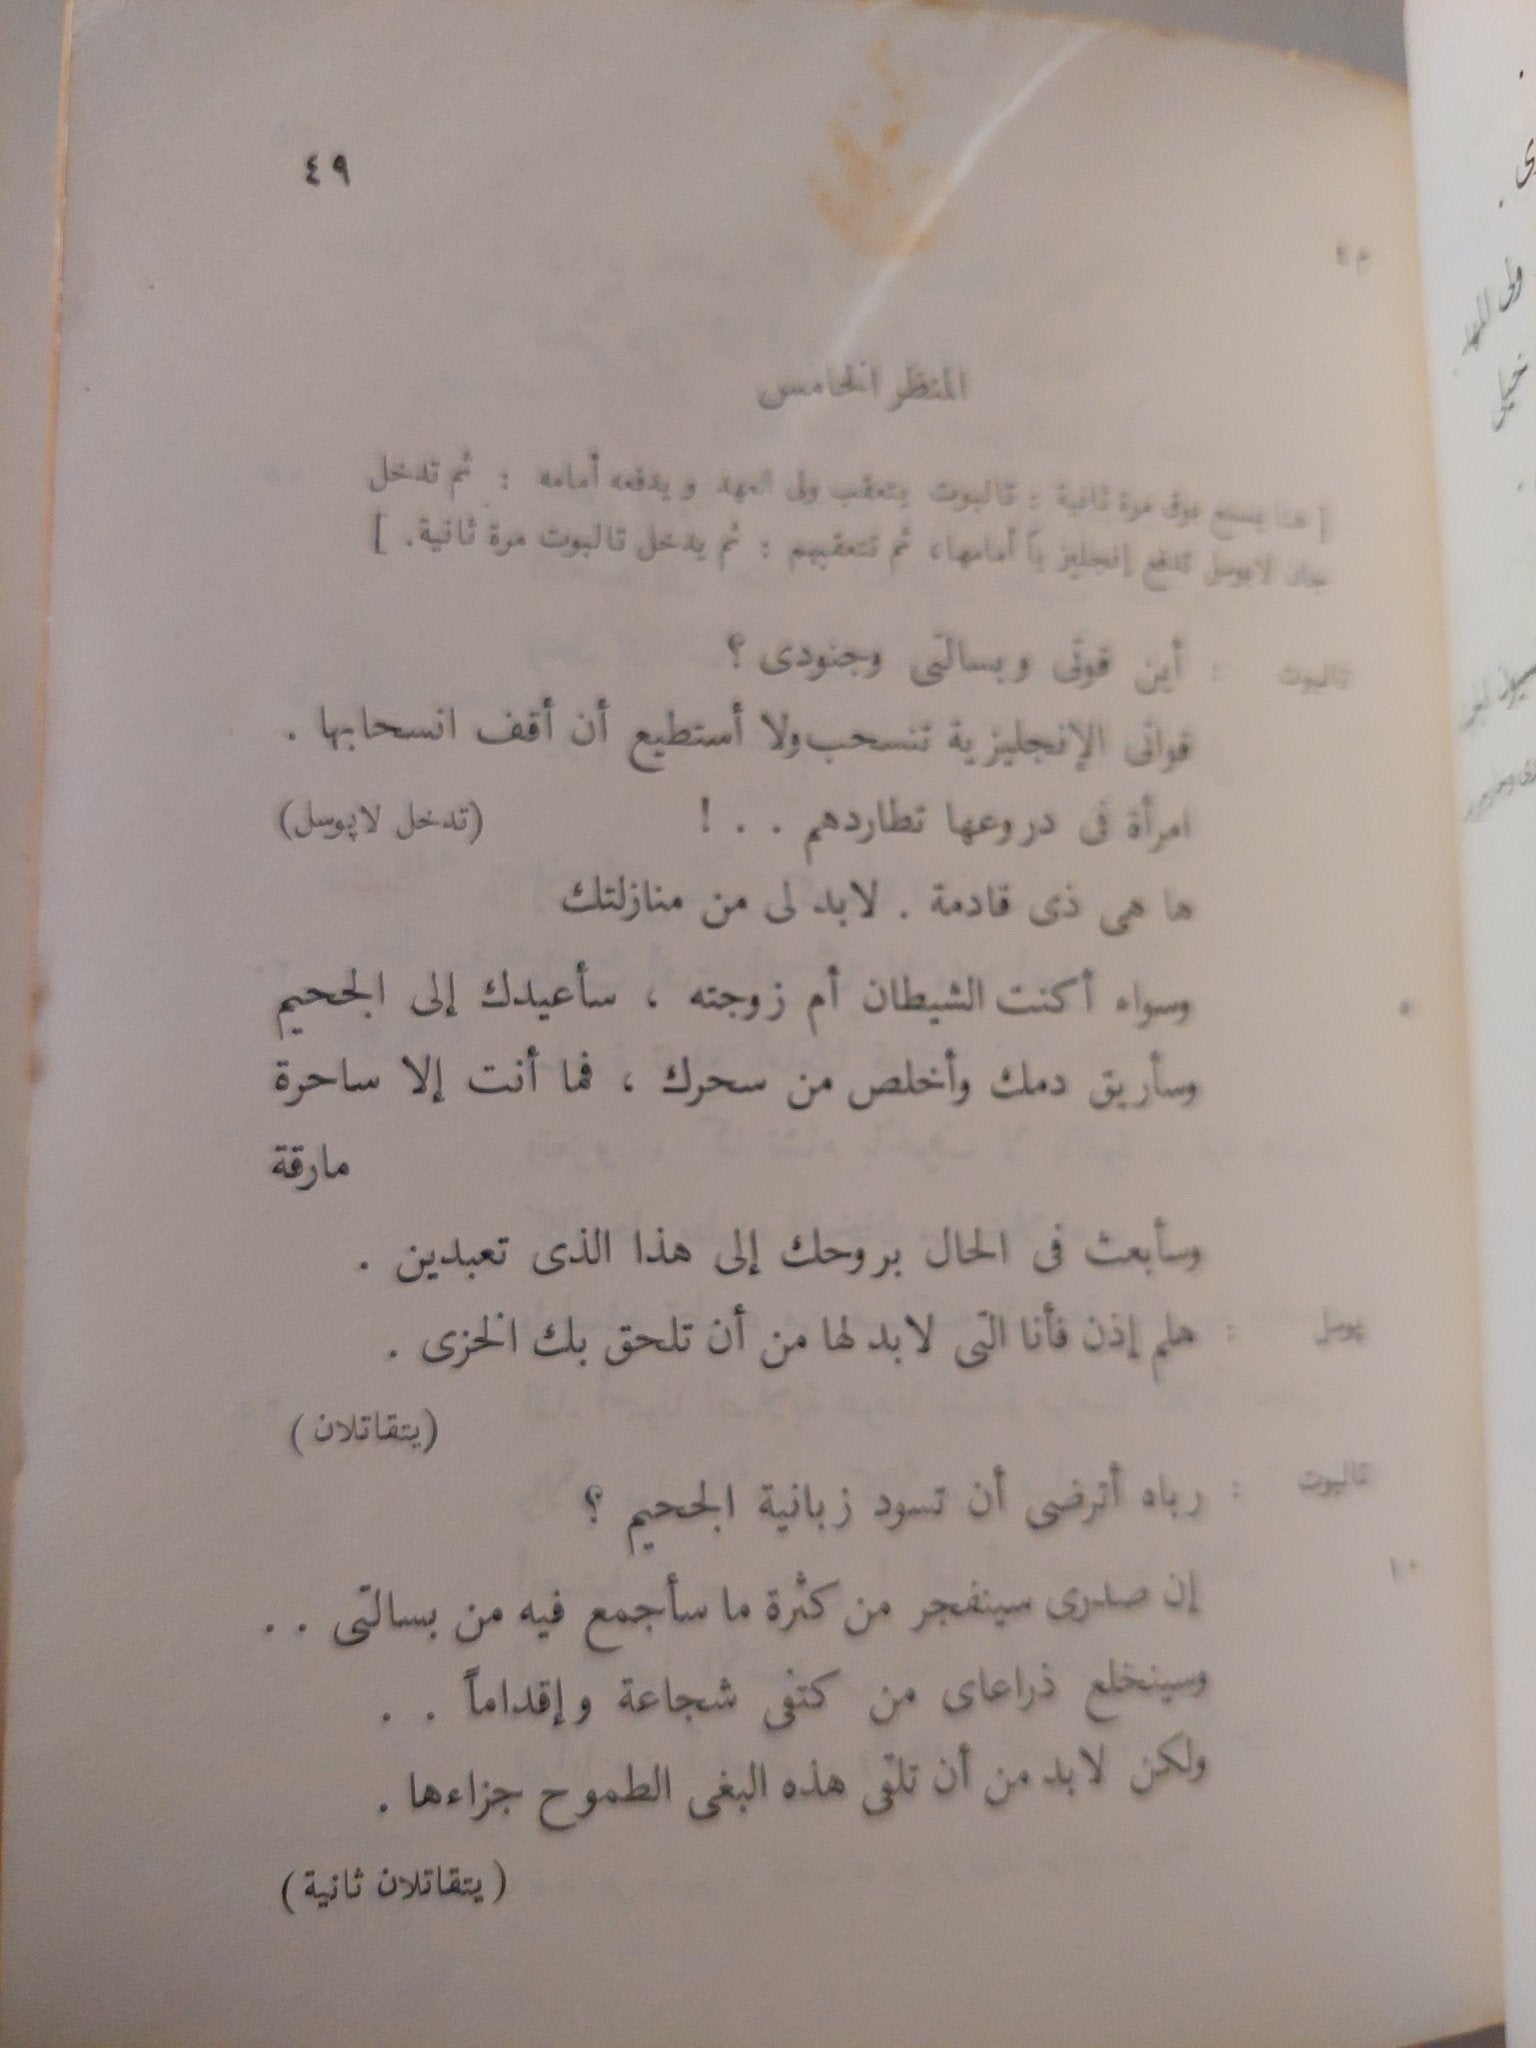 ٤٩
م ٤
المنظر الخامس
[ هنا يسمع بوق مرة ثانية : تالبوت يتعقب ولى العهد ويدفعه أمامه : ثم تدخل
جان لاپوسل تدفع إنجليزياً أمامها، ثم تتعقبهم : ثم يدخل تالبوت مرة ثانية. ]
تالبوت : أين قوتى وبسالتى وجنودى ؟
قواتى الإنجليزية تنسحب ولا أستطيع أن أقف انسحابها .
امرأة فى دروعها تطاردهم . . ! (تدخل لاپوسل)
ها هى ذى قادمة . لابد لى من منازلتك
وسواه أكنت الشيطان أم زوجته ، سأعيدك إلى الجحيم ٥
وسأريق دمك وأخلص من سحرك ، فما أنت إلا ساحرة
مارقة
وسأبعث فى الحال بروحك إلى هذا الذى تعبدين .
پوسل : هلم إذن فأنا التى لابد لها من أن تلحق بك الخزى .
(يتقاتلان )
تالبوت : رباه أترضى أن تسود زبانية الجحيم ؟
إن صدرى سينفجر من كثرة ما سأجمع فيه من بسالتى . . ١٠
وسينخلع ذراعاى من كتفى شجاعة وإقداماً . .
ولكن لابد من أن تلقى هذه البغى الطموح جزاءها .
( يتقاتلان ثانية )
ولى العهد